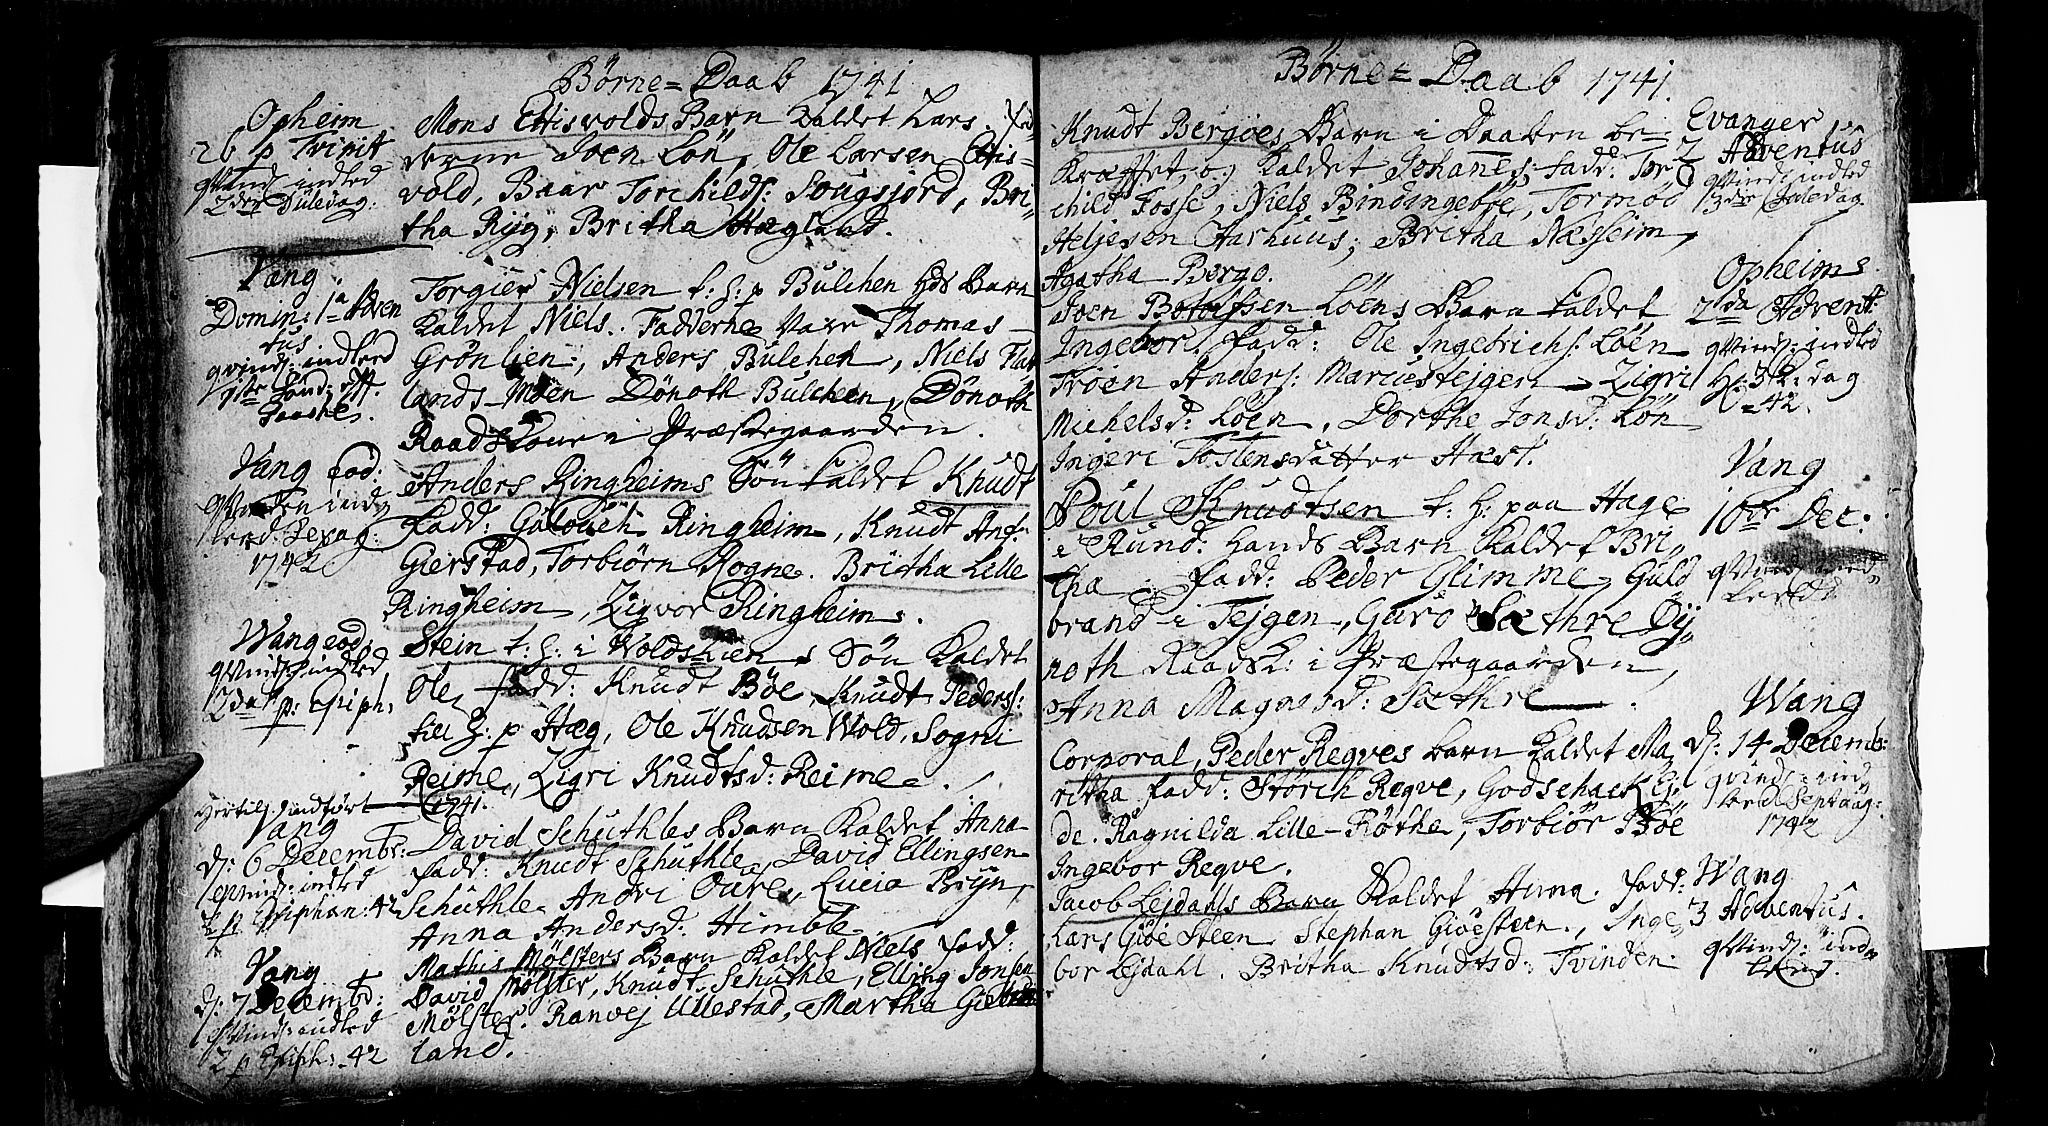 Börne = Daab 1741
Opheim
26 p Trinit
qvind: indled
2den Juledag:
Mons Ettisvolds Barn kaldet Lars. fad
derne Joen Lön, Ole Larsen Ettis=
vold, Baar Torchilds: Sougsjord, Bri-
tha Ryg, Britha Hægland.
Vang
Domin: 1a Adven
tus
qvind: indled
1ste Sönd: eft.
Paaske.
Torgier Nielsen t: h: p Bulchen hds Barn
kaldet Niels. Fadderne vare Thomas
Grönlien, Anders Bulchen, Niels Flat
lands-Moen Dönoth Bulchen, Dönoth
Raadskone i Præstegaarden.
Vang eod:
1742
Anders Ringheims Sön kaldet Knudt
Fadd: Gulouch Ringheim, Knudt And:
Gierstad, Torbiörn Rogne. Britha Lille
Ringheim, Zigvor Ringheim.
Wang eod:
qvind: indled
2da p: Epiph:
Stein t: h: i Woldshien s Sön kaldet
Ole, fadd: Knudt Böe, Knudt Peders:
tie h: p Hæg, Ole Knudsen Wold, Sogni
Reime, Zigri Knudtsd: Reime.
1741.
Vang
d: 6 Decembr:
qvind: indled
2 p Epiphan: 42
David Schuthles Barn kaldet Anna
fadd: Knudt Schuthle, David Ellingsen
Schuthle Andri Oure, Lucia Bryn,
Anna Andersd: Himble.
Vang
d: 7 Decembr:
qvind: indled
2 p Epiph: 42
Mathis Mölsters Barn kaldet Niels fadd:
David Mölster, Knudt Schuthle, Elling Jonsen
Mölster. Ranvej Ullestad, Martha
land.
Börne = Daab 1741.
Knudt Bergöes Barn i Daaben be-
kræfftet, og kaldet Johanes. fadd: Tor
child Fosse, Niels Bindingeböe, Tormod
Heljesen Aarhuus, Britha Næsheim,
Agatha Bergo.
Evanger
2 Adventus
qvind: indled
3die Juledag.
Joen Botolfsen Löens Barn kaldet
Ingebor. fadd: Ole Ingebrichs: Löen
Troen Anders: Marcusteigen, Zigri
Michelsd: Löen, Dorthe Jonsd: Lön
Ingeri Tostensdatter Hæst.
Opheims
2da Advent
qvind: indled
H: 3 K: dag
42.
Poul Knudtsen t: h: paa Hage
i Rund: hands Barn kaldet Bri-
tha. fadd: Peder Glimme, Guld
brand i Tejgen, Guro Sæthre Dy
noth Raadsk: i Præstegaarden,
Anna Magnesd: Sæthre.
Vang
10de Dec:
Corporal, Peder Reqves barn kaldet Ma
ritha fadd: Störch Reqve, Godschalk Gj:
de. Ragnilda Lille-Röthe, Torbiör Böe
Ingebor Reqve.
Wang
d: 14 Decemb:
qvind: ind
led Septuag:
1742
Jacob Lejdahls Barn kaldet Anna. fadd:
Lars Giöe Steen, Stephan Giöesteen, Inge
bor Lejdahl. Britha Knudtsd: Tvinden.
Wang
3 Adventus.
qvind: ind